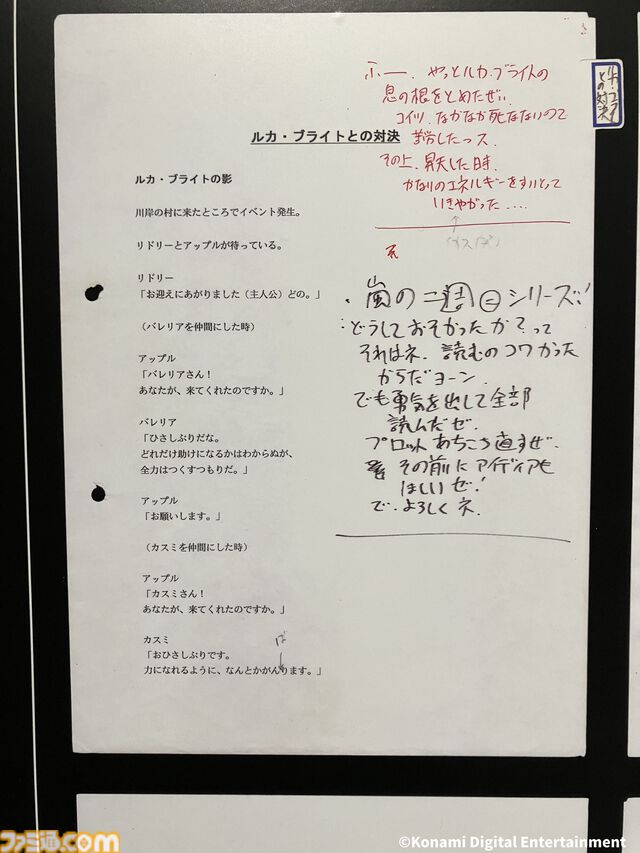 ふー、やっとルカ・ブライトの
息の根をとめたぜい
コイツ、なかなか死なないので
苦労したっス
その上、昇天した時、
かなりのエネルギーをすいとって
いきやがった....
↑
ルカ・ブライトとの対決
との対決
ルカ・ブライトの影
川岸の村に来たところでイベント発生。
リドリーとアップルが待っている。
リドリー
「お迎えにあがりました（主人公）どの。」
（バレリアを仲間にした時）
アップル
「バレリアさん！
あなたが、来てくれたのですか。」
バレリア
「ひさしぶりだな。
どれだけ助けになるかはわからぬが、
全力はつくすつもりだ。」
アップル
「お願いします。」
（カスミを仲間にした時）
アップル
「カスミさん！
あなたが、来てくれたのですか。」
カスミ
「おひさしぶりです。
力になれるように、なんとかがんります。」
ば
・嵐の二週㊁シリーズ!
：どうしておそかったか？って
それはネ、読むのコワかった
からだヨーン.
でも勇気を出して全部
読んだぜ.
プロットあちこち直すぜ.
その前にアイディアも
ほしいぜ!
で、よろしくネ.
ファミ通.com
©Konami Digital Entertainment